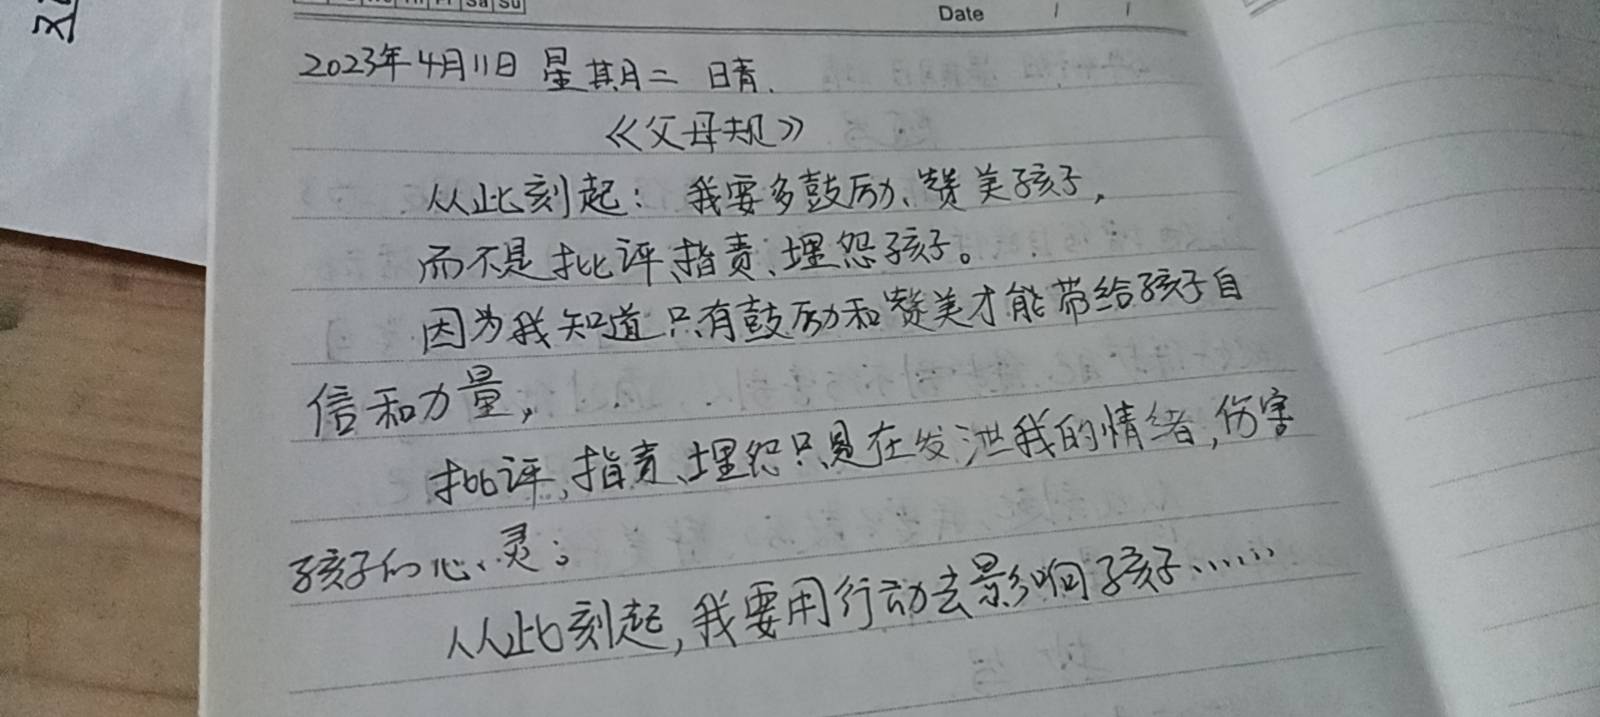 Sa Su
Date / /
2023年4月11日 星期二 晴.
《父母规》
从此刻起：我要多鼓励、赞美孩子,
而不是批评、指责、埋怨孩子。
因为我知道只有鼓励和赞美才能带给孩子自
信和力量,
批评,指责、埋怨只是在发泄我的情绪,伤害
孩子的心灵;
从此刻起,我要用行动去影响孩子......